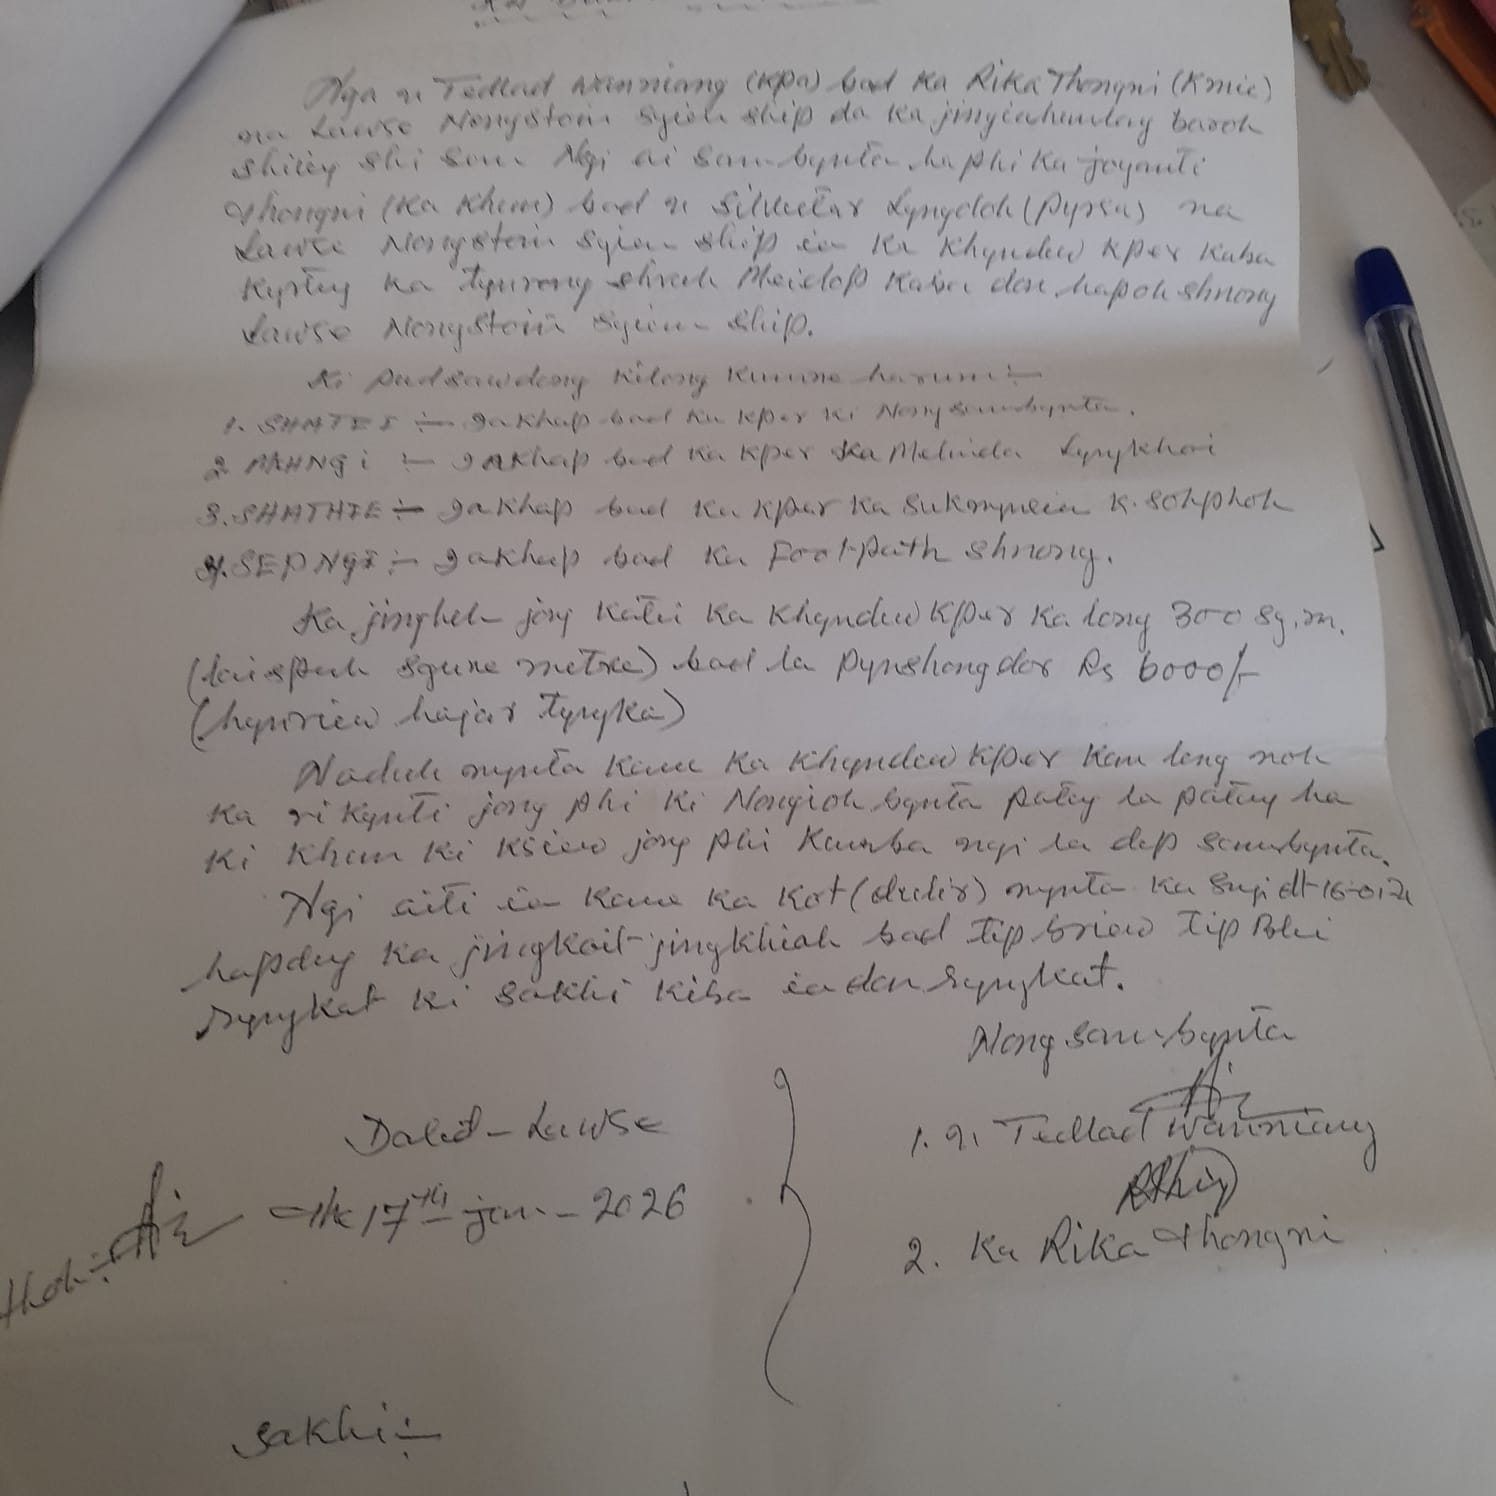 Nga u Tedlad Wanniang (Kpa) bad ka Rika Thongni (Kmie)
na Lawse Nongstoin Syiem ship da ka jingiahunlang baroh
shilliang shi Sam Ngi ai Sam bynta ha phi ka joyanti
Thongni (ka Khun) bad u Silvester Lyngdoh (pyrsa) na
Lawse Nongstoin Syiem ship ia ka Khyndew Kper kaba
Kyrteng ka shnong Lawse kaba don hapoh shnong
Lawse Nongstoin Syiem ship.
Ki pud sawdong kilong kumne harum:-
1. SHATEI :- Iakhap bad ka kper ki Nongsambynta.
2. MIHNGI :- Iakhap bad ka kper ka Melinda Lyngkhoi
3. SHATHIE :- Iakhap bad ka kper ka K. Sohphoh
4. SEPNGI :- Iakhap bad ka Foot-path Shnong.
Ka jingheh jong katei ka Khyndew Kper ka long 300 sq.m.
(laispah squre metre) bad la pynshong dor Rs 6000/-
(hynriew hajar tyngka)
Naduh mynta kane ka Khyndew Kper kan long noh
ka ri kynti jong phi ki Nongioh bynta pateng la pateng ha
ki khun ki ksiew jong phi kumba ngi la dep sambynta.
Ngi aiti ia kane ka kot (dulir) mynta ka sngi dt-16-01-26
hapdeng ka jingkoit-jingkhiah bad tip briew tip Blei
ryngkat ki sakhi kiba ia don ryngkat.
Nongsambynta
Dated-Lawse
1. U Tedlad Wanniang
The 17th jan-2026
2. Ka Rika Thongni
Sakhi:-